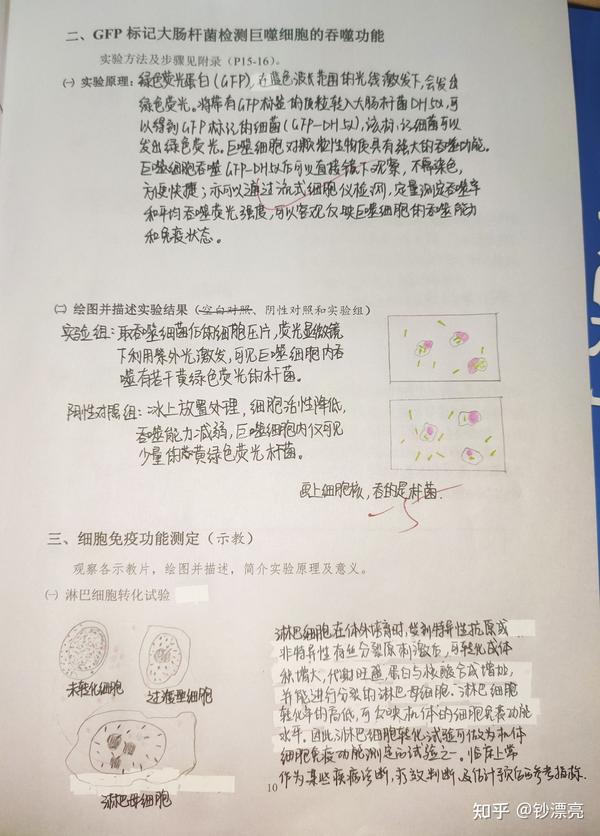 二、GFP 标记大肠杆菌检测巨噬细胞的吞噬功能
实验方法及步骤见附录（P15-16）。
㈠ 实验原理：绿色荧光蛋白(GFP)，在蓝色波长范围的光线激发下，会发出
绿色荧光。将带有GFP标签的质粒转入大肠杆菌DH5α，可
以得到GFP标记的细菌(GFP-DH5α)，该标记细菌可以
发出绿色荧光。巨噬细胞对颗粒性物质具有强大的吞噬功能。
巨噬细胞吞噬GFP-DH5α后可以直接镜下观察，不需染色，
方便快捷；亦可以通过流式细胞仪检测，定量测定吞噬率
和平均吞噬荧光强度，可以客观反映巨噬细胞的吞噬能力
和免疫状态。
㈡ 绘图并描述实验结果（空白对照、阴性对照和实验组）
实验组：取吞噬细菌后的细胞压片，荧光显微镜
下利用紫外光激发，可见巨噬细胞内吞
噬有若干黄绿色荧光的杆菌。
阴性对照组：冰上放置处理，细胞活性降低，
吞噬能力减弱，巨噬细胞内仅可见
少量的黄绿色荧光杆菌。
画上细胞核，吞的是杆菌．
三、细胞免疫功能测定（示教）
观察各示教片，绘图并描述，简介实验原理及意义。
㈠ 淋巴细胞转化试验
未转化细胞
过渡型细胞
淋巴母细胞
淋巴细胞在体外培育时，受到特异性抗原或
非特异性有丝分裂原刺激后，可转化成体
积增大，代谢旺盛，蛋白与核酸合成增加，
并能进行分裂的淋巴母细胞。淋巴细胞
转化率的高低，可反映机体的细胞免疫功能
水平。因此淋巴细胞转化试验可做为机体
细胞免疫功能测定的试验之一。临床上常
作为某些疾病诊断，疗效判断，及估计预后的参考指标．
10
知乎 @钞漂亮